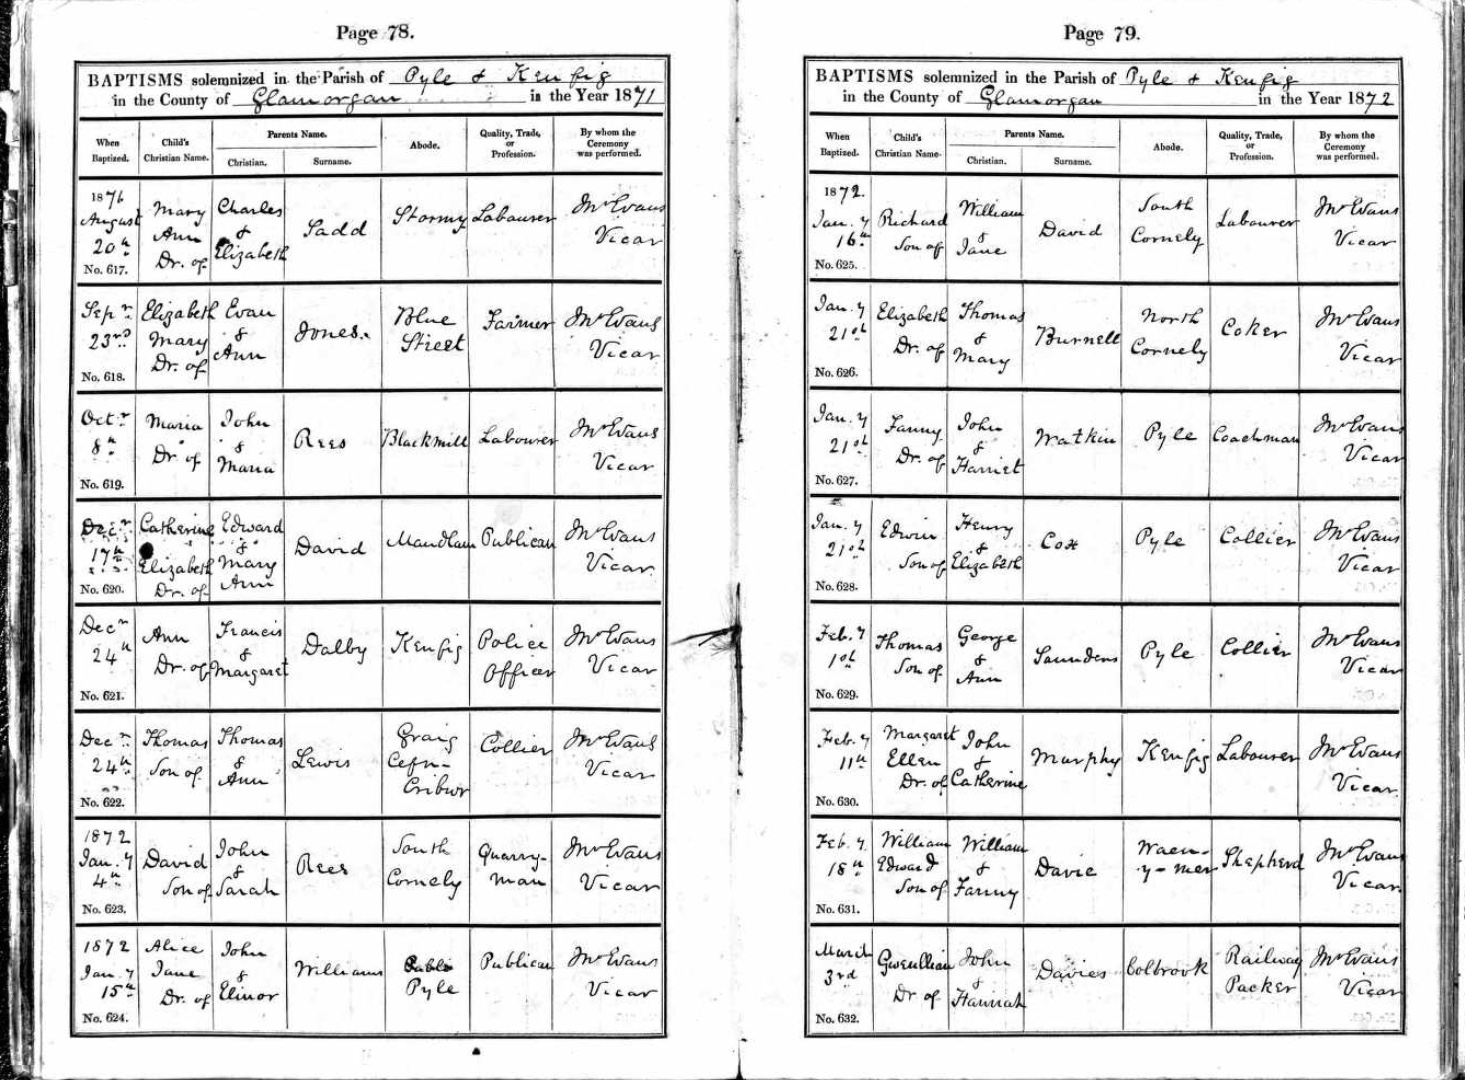 Page 78.
BAPTISMS solemnized in the Parish of Pyle & Kenfig
in the County of Glamorgan in the Year 1871
When Baptized. Child's Christian Name. Parents Name. Christian. Surname. Abode. Quality, Trade, or Profession. By whom the Ceremony was performed.
1871 August 20th No. 617. Mary Ann Dr. of Charles & Elizabeth Sadd Stormy Labourer Mr Evans Vicar
Sepr 23rd No. 618. Elizabeth Mary Dr. of Evan & Ann Jones. Blue Street Farmer Mr Evans Vicar
Octr 8th No. 619. Maria Dr of John & Maria Rees Blackmill Labourer Mr Evans Vicar
Decr 17th No. 620. Catherine Elizabeth Dr. of Edward & Mary Ann David Maudlam Publican Mr Evans Vicar.
Decr 24th No. 621. Ann Dr. of Francis & Margaret Dalby Kenfig Police Officer Mr Evans Vicar
Decr 24th No. 622. Thomas Son of Thomas & Ann Lewis Graig Cefn- Cribwr Collier Mr Evans Vicar
1872 Jan.y 4th No. 623. David Son of John & Sarah Rees South Cornely Quarry- man Mr Evans Vicar
1872 Jan.y 15th No. 624. Alice Jane Dr. of John & Elinor Williams Pyle Publican Mr Evans Vicar
Page 79.
BAPTISMS solemnized in the Parish of Pyle & Kenfig
in the County of Glamorgan in the Year 1872
When Baptized. Child's Christian Name. Parents Name. Christian. Surname. Abode. Quality, Trade, or Profession. By whom the Ceremony was performed.
1872. Jan.y 16th No. 625. Richard Son of William & Jane David South Cornely Labourer Mr Evans Vicar
Jan.y 21st No. 626. Elizabeth Dr. of Thomas & Mary Burnell North Cornely Coker Mr Evans Vicar
Jan.y 21st No. 627. Fanny Dr. of John & Harriet Watkin Pyle Coachman Mr Evans Vicar
Jan.y 21st No. 628. Edwin Son of Henry & Elizabeth Cox Pyle Collier Mr Evans Vicar
Feb.y 1st No. 629. Thomas Son of George & Ann Saunders Pyle Collier Mr Evans Vicar
Feb.y 11th No. 630. Margaret Ellen Dr. of John & Catherine Murphy Kenfig Labourer Mr Evans Vicar.
Feb.y 18th No. 631. William Edward Son of William & Fanny Davie Waen- y-mer Shepherd Mr Evans Vicar.
March 3rd No. 632. Gwenllian Dr of John & Hannah Davies Colbrook Railway Packer Mr Evans Vicar